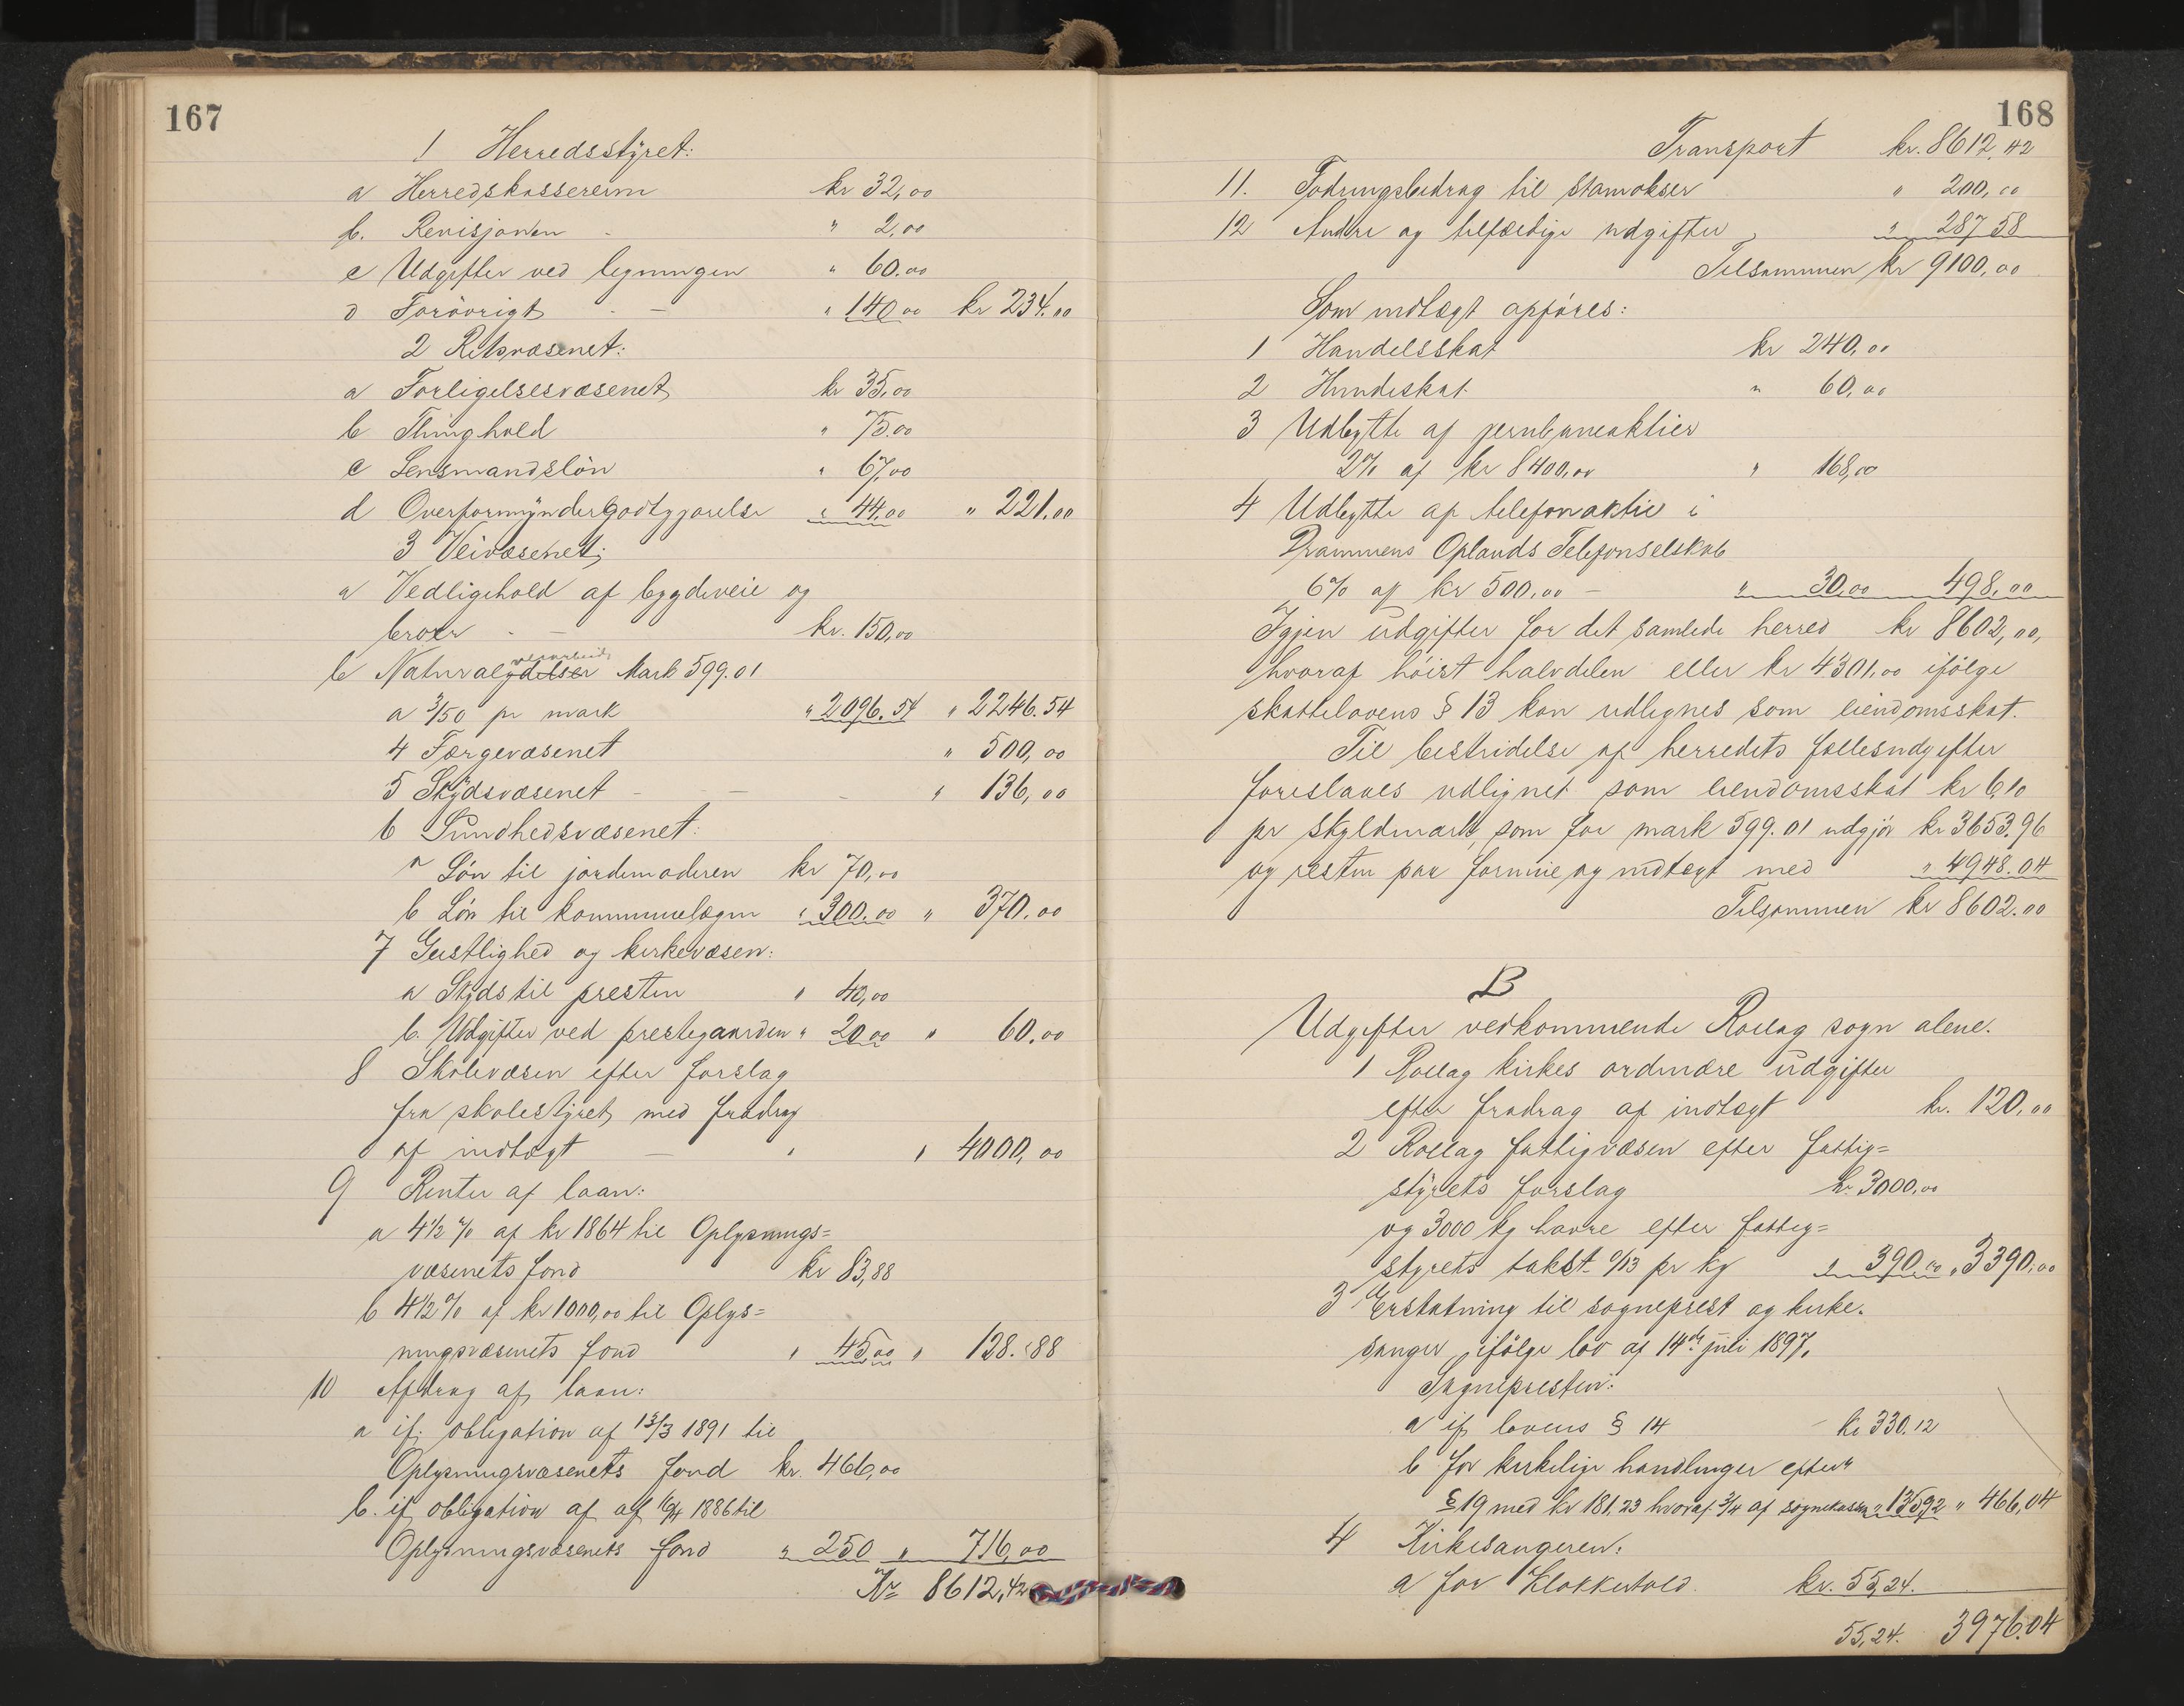 167
1 Herredsstyret:
a Herredskassereren kr 32,00
b. Revisjonen - " 2,00
c Udgifter ved ligningen " 60.00
d Forøvrigt - - " 140 00 kr 234.00
2 Retsvæsenet:
a Forligelsesvæsenet kr 35,00
b Thinghold " 75.00
c Lensmandsløn " 67,00
d Overformyndergodtgjørelse " 44.00 " 221.00
3 Veivæsenet;
a Vedligehold af bygdeveie og
broer - - kr. 150,00
veiarbeide
b Naturalydelser Mark 599.01
a 3/50 pr mark " 2096.54 " 2246.54
4 Færgevæsenet " 500,00
5 Skydsvæsenet - - - " 136,00
6 Sundhedsvæsenet:
a Løn til jordemoderen kr 70,00
b Løn til kommunelægen " 300.00 " 370.00
7 Geistlighed og kirkevæsen:
a Skyds til presten " 40,00
b. Udgifter ved prestegaarden " 20 00 " 60.00
8 Skolevæsen efter forslag
fra skolestyret med fradrag
af indtægt - " " 4000,00
9 Renter af laan:
a 4½ % af kr 1864 til Oplysnings=
væsenets fond kr 83,88
b 4½ % af kr 1000,00 til Oplys=
ningsvæsenets fond " 45,00 " 128.88
10 Afdrag af laan:
a if. obligation af 13/3 1891 til
Oplysningsvæsenets fond kr. 466,00
b. if. obligation af af 1886 til
Oplysningsvæsenets fond " 250 " 716,00
Kr 8612,42
168
Transport kr. 8612,42
11. Fodringsbidrag til stamokser " 200,00
12 Andre og tilfældige udgifter " 287 58
Tilsammen kr 9100,00
Som indtægt opføres:
1 Handelsskat kr 240,00
2 Hundeskat " 60,00
3 Udbytte af jernbaneaktier
2% af kr 8400,00 " 168,00
4 Udbytte af telefonaktie i
Drammens Oplands Telefonselskab
6% af kr 500,00 - " 30,00 498,00
Igjen udgifter for det samlede herred kr 8602,00,
hvoraf høist halvdelen eller kr 4301,00 ifølge
skattelovens § 13 kan udlignes som eiendomsskat.
Til bestridelse af herredets fællesudgifter
foreslaaes udlignet som eiendomsskat kr 6,10
pr skyldmark, som for mark 599.01 udgjør kr 3653.96
og resten paa formue og indtægt med " 4948.04
Tilsammen kr 8602.00
B
Udgifter vedkommende Rollag sogn alene.
1 Rollag kirkes ordinære udgifter
efter fradrag af indtægt kr. 120,00
2 Rollag fattigvæsen efter fattig=
styrets forslag kr 3000,00
og 3000 kg havre efter fattig=
styrets takst 0/13 pr kg " 390.00 " 3390,00
3 Erstatning til sogneprest og kirke-
sanger ifølge lov af 14de juli 1897.
Sognepresten:
a if lovens § 14 kr 330.12
b for kirkelige handlinger efter
§ 19 med kr 181,23 hvoraf 3/4 af sognekassen " 135,92 " 466,04
4 Kirkesangeren:
a for Klokketold kr. 55,24.
55,24. 3976.04